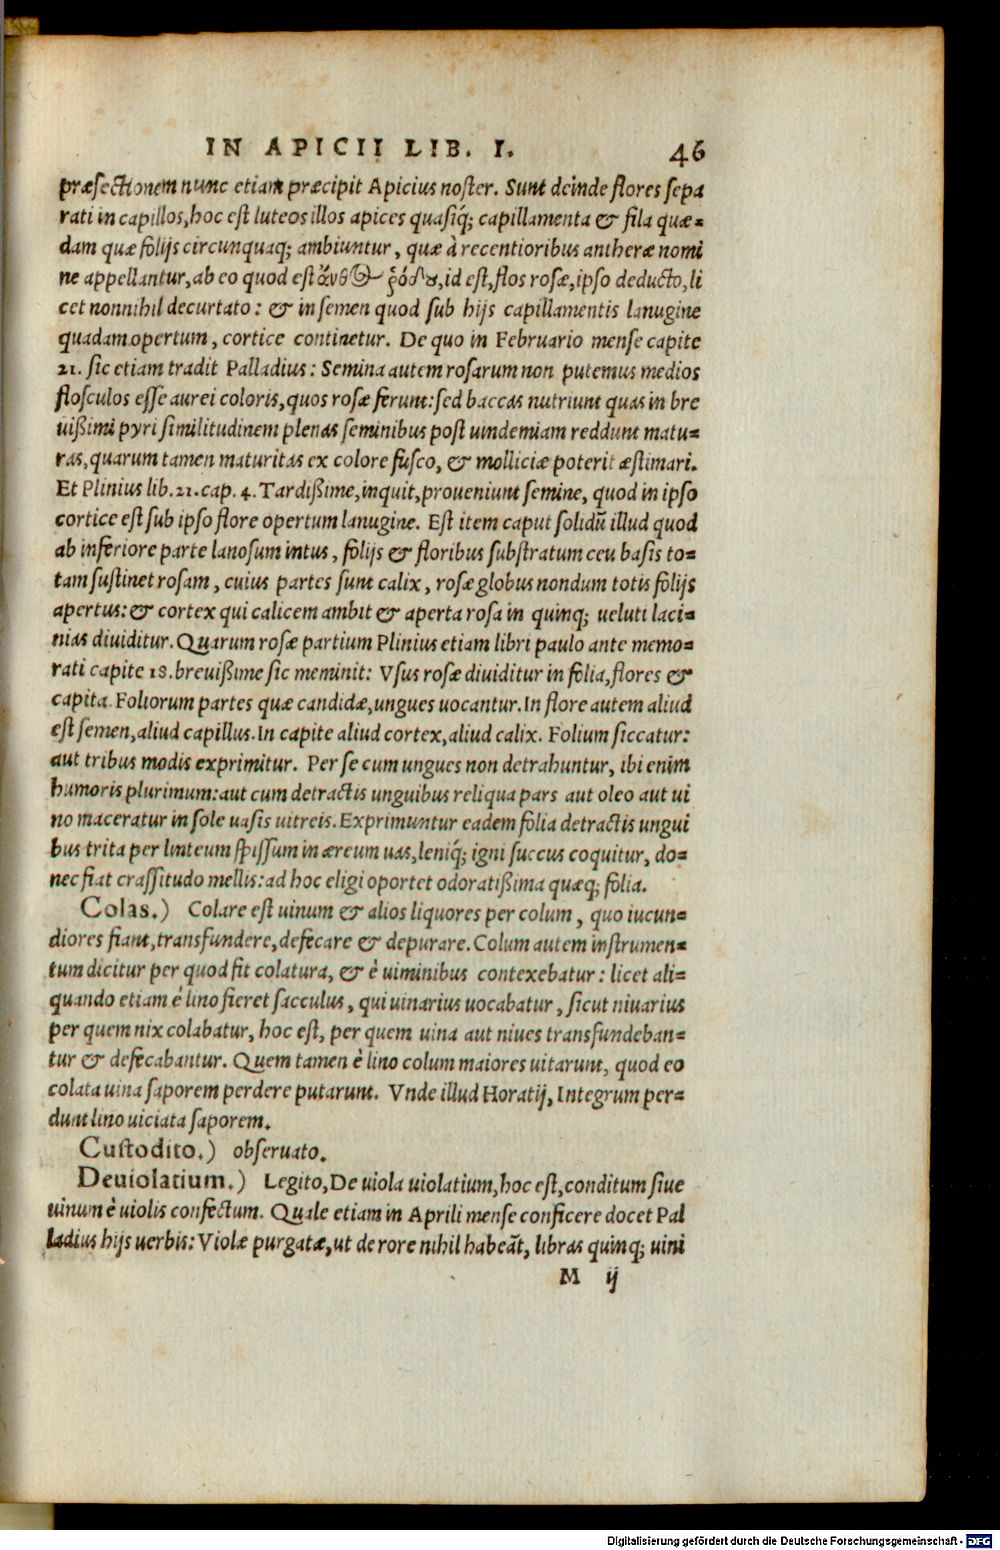 IN APICII LIB. I. 46
præsectionem nunc etiam præcipit Apicius noster. Sunt deinde flores sepa
rati in capillos, hoc est luteos illos apices quasiq́; capillamenta & fila quæ-
dam quæ folijs circunquaq; ambiuntur, quæ à recentioribus antheræ nomi
ne appellantur, ab eo quod est ἄνθος ῥόδου, id est, flos rosæ, ipso deducto, li
cet nonnihil decurtato: & in semen quod sub hijs capillamentis lanugine
quadam opertum, cortice continetur. De quo in Februario mense capite
21. sic etiam tradit Palladius: Semina autem rosarum non putemus medios
flosculos esse aurei coloris, quos rosæ ferunt: sed baccas nutriunt quas in bre
uißimi pyri similitudinem plenas seminibus post uindemiam reddunt matu-
ras, quarum tamen maturitas ex colore fusco, & molliciæ poterit æstimari.
Et Plinius lib. 21. cap. 4. Tardißime, inquit, proueniunt semine, quod in ipso
cortice est sub ipso flore opertum lanugine. Est item caput solidū illud quod
ab inferiore parte lanosum intus, folijs & floribus substratum ceu basis to-
tam sustinet rosam, cuius partes sunt calix, rosæ globus nondum totis folijs
apertus: & cortex qui calicem ambit & aperta rosa in quinq; ueluti laci-
nias diuiditur. Quarum rosæ partium Plinius etiam libri paulo ante memo-
rati capite 18. breuißime sic meminit: Vsus rosæ diuiditur in folia, flores &
capita. Foliorum partes quæ candidæ, ungues uocantur. In flore autem aliud
est semen, aliud capillus. In capite aliud cortex, aliud calix. Folium siccatur:
aut tribus modis exprimitur. Per se cum ungues non detrahuntur, ibi enim
humoris plurimum: aut cum detractis unguibus reliqua pars aut oleo aut ui
no maceratur in sole uasis uitreis. Exprimuntur eadem folia detractis ungui
bus trita per linteum spissum in æreum uas, leniq́; igni succus coquitur, do-
nec fiat crassitudo mellis: ad hoc eligi oportet odoratißima quæq; folia.
Colas.) Colare est uinum & alios liquores per colum, quo iucun-
diores fiant, transfundere, defecare & depurare. Colum autem instrumen-
tum dicitur per quod fit colatura, & è uiminibus contexebatur: licet ali-
quando etiam è lino fieret sacculus, qui uinarius uocabatur, sicut niuarius
per quem nix colabatur, hoc est, per quem uina aut niues transfundeban-
tur & defecabantur. Quem tamen è lino colum maiores uitarunt, quod eo
colata uina saporem perdere putarunt. Vnde illud Horatij, Integrum per-
dunt lino uiciata saporem.
Custodito.) obseruato.
Deuiolatium.) Legito, De uiola uiolatium, hoc est, conditum siue
uinum è uiolis confectum. Quale etiam in Aprili mense conficere docet Pal
ladius hijs uerbis: Violæ purgatæ, ut de rore nihil habeāt, libras quinq; uini
M ij
Digitalisierung gefördert durch die Deutsche Forschungsgemeinschaft - DFG